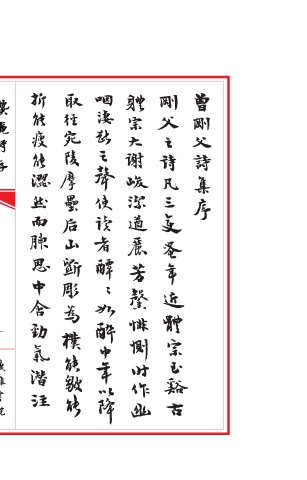 曾剛父詩集序
剛父之詩凡三變蚤年近體宗玉谿古
體宗大謝峻潔遒麗芳馨悱惻时作幽
咽凄斷之聲使读者醰〻如醉中年以降
取径宛陵摩壘后山斵彫為樸能皴能
折能瘦能澀然而腴思中含勁氣潛注